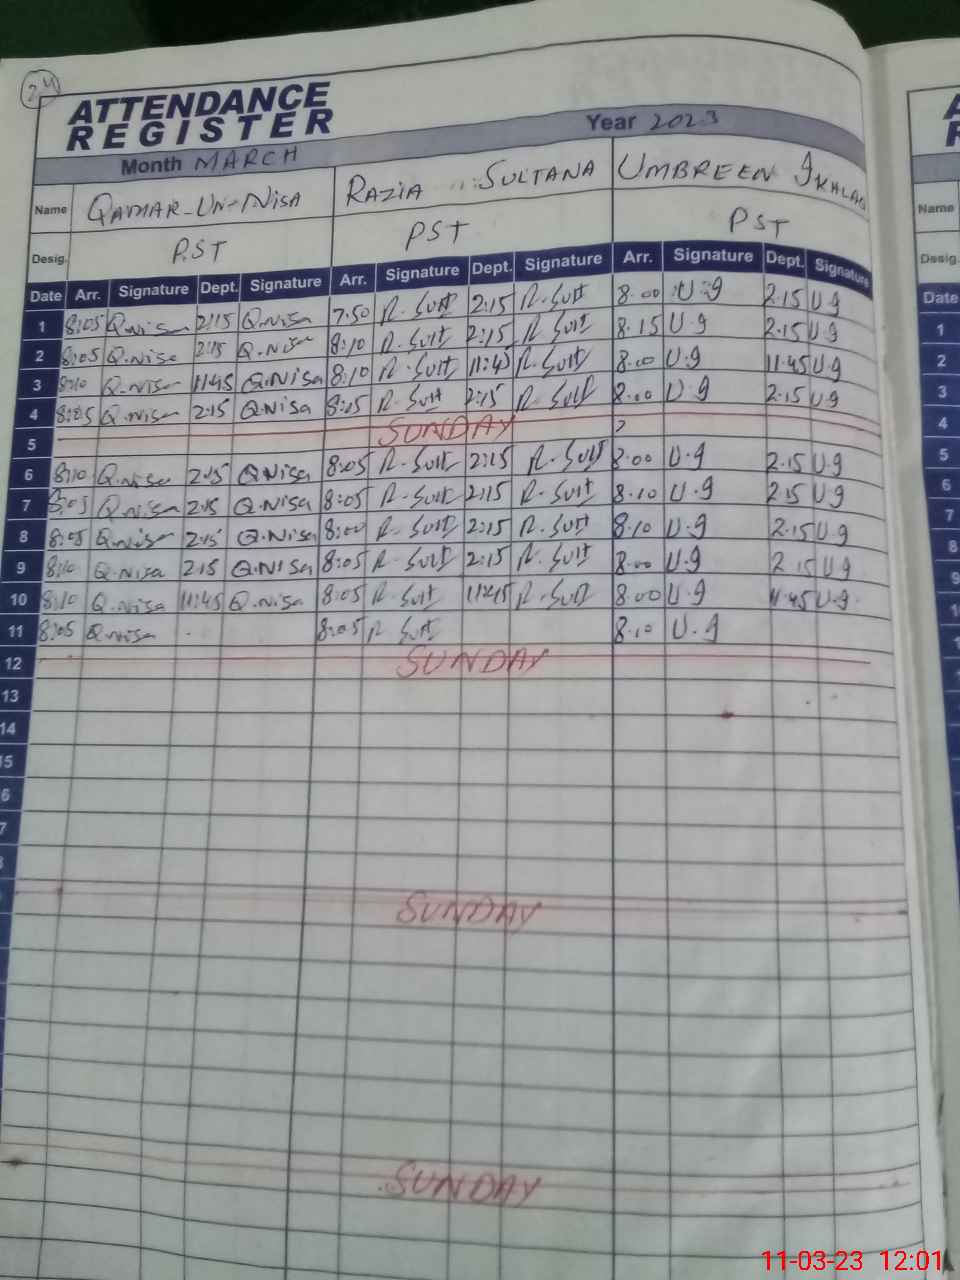 24
ATTENDANCE
REGISTER
Year 2023
Month MARCH
Name QAMAR-UN-NISA RAZIA SULTANA UMBREEN IKHLAQ
Desig. P.ST PST PST
Date Arr. Signature Dept. Signature Arr. Signature Dept. Signature Arr. Signature Dept. Signature
1 8:05 Q.Nisa 2:15 Q.Nisa 7.50 R.Sult 2:15 R.Sult 8.00 U.g 2.15 U g
2 8:05 Q.Nisa 2:15 Q.Nisa 8:10 R.Sult 2:15 R.Sult 8.15 U.g 2.15 U g
3 8:10 Q.Nisa 11:45 Q.Nisa 8:10 R.Sult 11:45 R.Sult 8.00 U.g 11.45 U.g
4 8:05 Q.Nisa 2:15 Q.Nisa 8:05 R.Sult 2:15 R.Sult 8.00 U.g 2.15 U.g
5 SUNDAY
6 8:10 Q.Nisa 2:15 Q.Nisa 8:05 R.Sult 2:15 R.Sult 8.00 U.g 2.15 U.g
7 8:05 Q.Nisa 2:15 Q.Nisa 8:05 R.Sult 2:15 R.Sult 8.10 U.g 2.15 U.g
8 8:05 Q.Nisa 2:15 Q.Nisa 8:00 R.Sult 2:15 R.Sult 8.10 U.g 2.15 U.g
9 8:10 Q.Nisa 2:15 Q.Nisa 8:05 R.Sult 2:15 R.Sult 8.00 U.g 2.15 U g
10 8:10 Q.Nisa 11:45 Q.Nisa 8:05 R.Sult 11:45 R.Sult 8.00 U.g 11.45 U.g.
11 8:05 Q.Nisa 8:05 R Sult 8.10 U.g
12 SUNDAY
13
14
15
6
7
SUNDAY
SUNDAY
Name
Desig.
Date
1
2
3
4
5
6
7
8
9
11-03-23 12:01